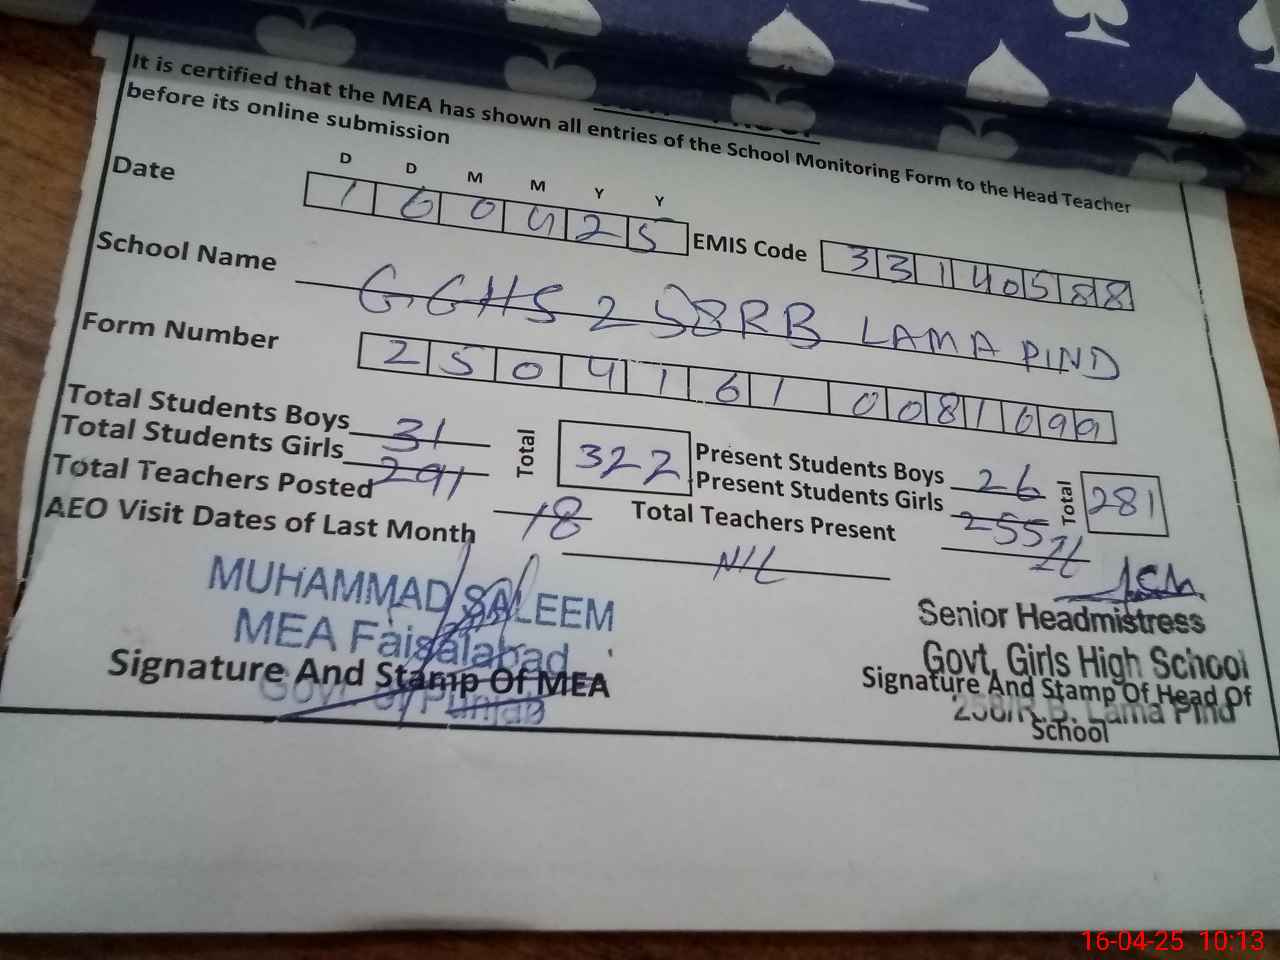 It is certified that the MEA has shown all entries of the School Monitoring Form to the Head Teacher
before its online submission
D D M M Y Y
Date 16 04 25 EMIS Code 33140588
School Name GGHS 258RB LAMA PIND
Form Number 25041610081699
Total Students Boys 31 Total 322 Present Students Boys 26 Total 281
Total Students Girls 291 Present Students Girls 255
Total Teachers Posted 18 Total Teachers Present
AEO Visit Dates of Last Month NIL
MUHAMMAD SALEEM
MEA Faisalabad
Signature And Stamp Of MEA
Govt. of Punjab
Senior Headmistress
Govt. Girls High School
Signature And Stamp Of Head Of
258/R.B. Lama Pind
School
16-04-25 10:13